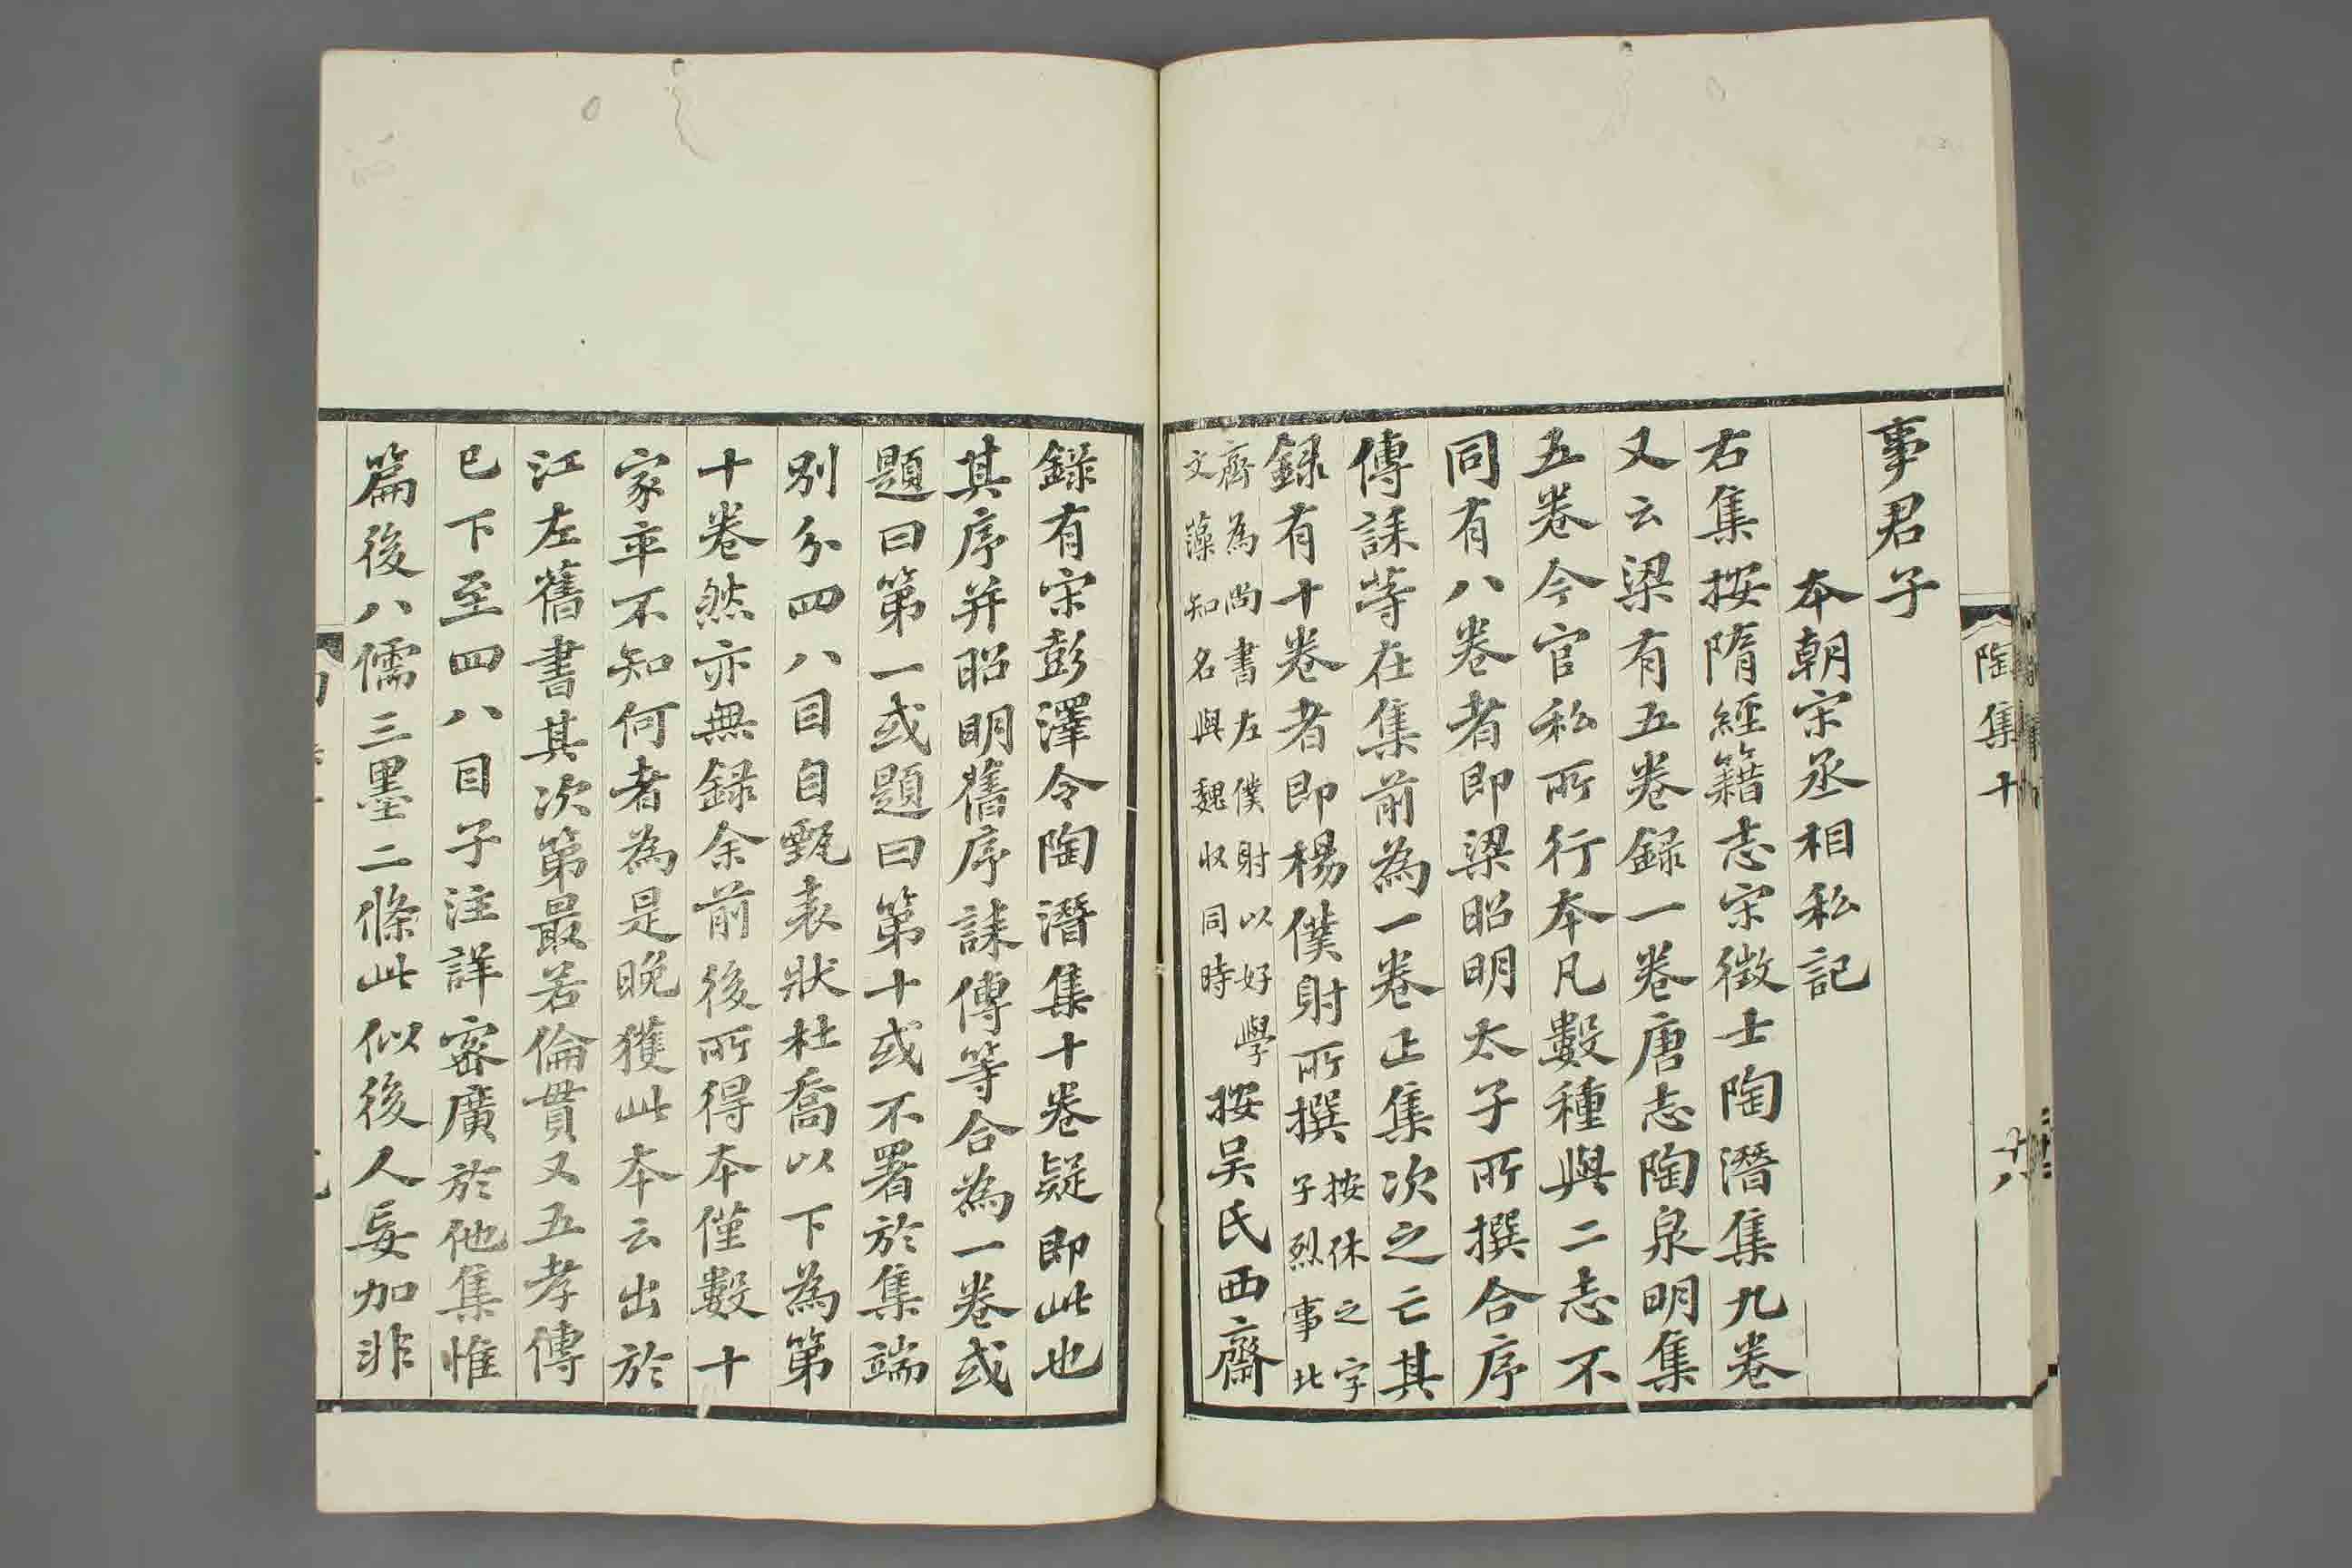 陶集十
十八
事君子
本朝宋丞相私記
右集按隋經籍志宋徴士陶潛集九卷
又云梁有五卷録一卷唐志陶泉明集
五卷今官私所行本凡數種與二志不
同有八卷者即梁昭明太子所撰合序
傳誄等在集前為一卷正集次之亡其
録有十卷者即楊僕射所撰按休之字
子烈事北
齊為尚書左僕射以好學
文藻知名與魏收同時按吴氏西齋
錄有宋彭澤令陶潛集十卷疑即此也
其序并昭明舊序誄傳等合為一卷或
題曰第一或題曰第十或不署於集端
别分四八目自甄表狀杜喬以下為第
十卷然亦無録余前後所得本僅數十
家卒不知何者為是晚獲此本云出於
江左舊書其次第最若倫貫又五孝傳
已下至四八目子注詳密廣於他集惟
篇後八儒三墨二條此似後人妄加非